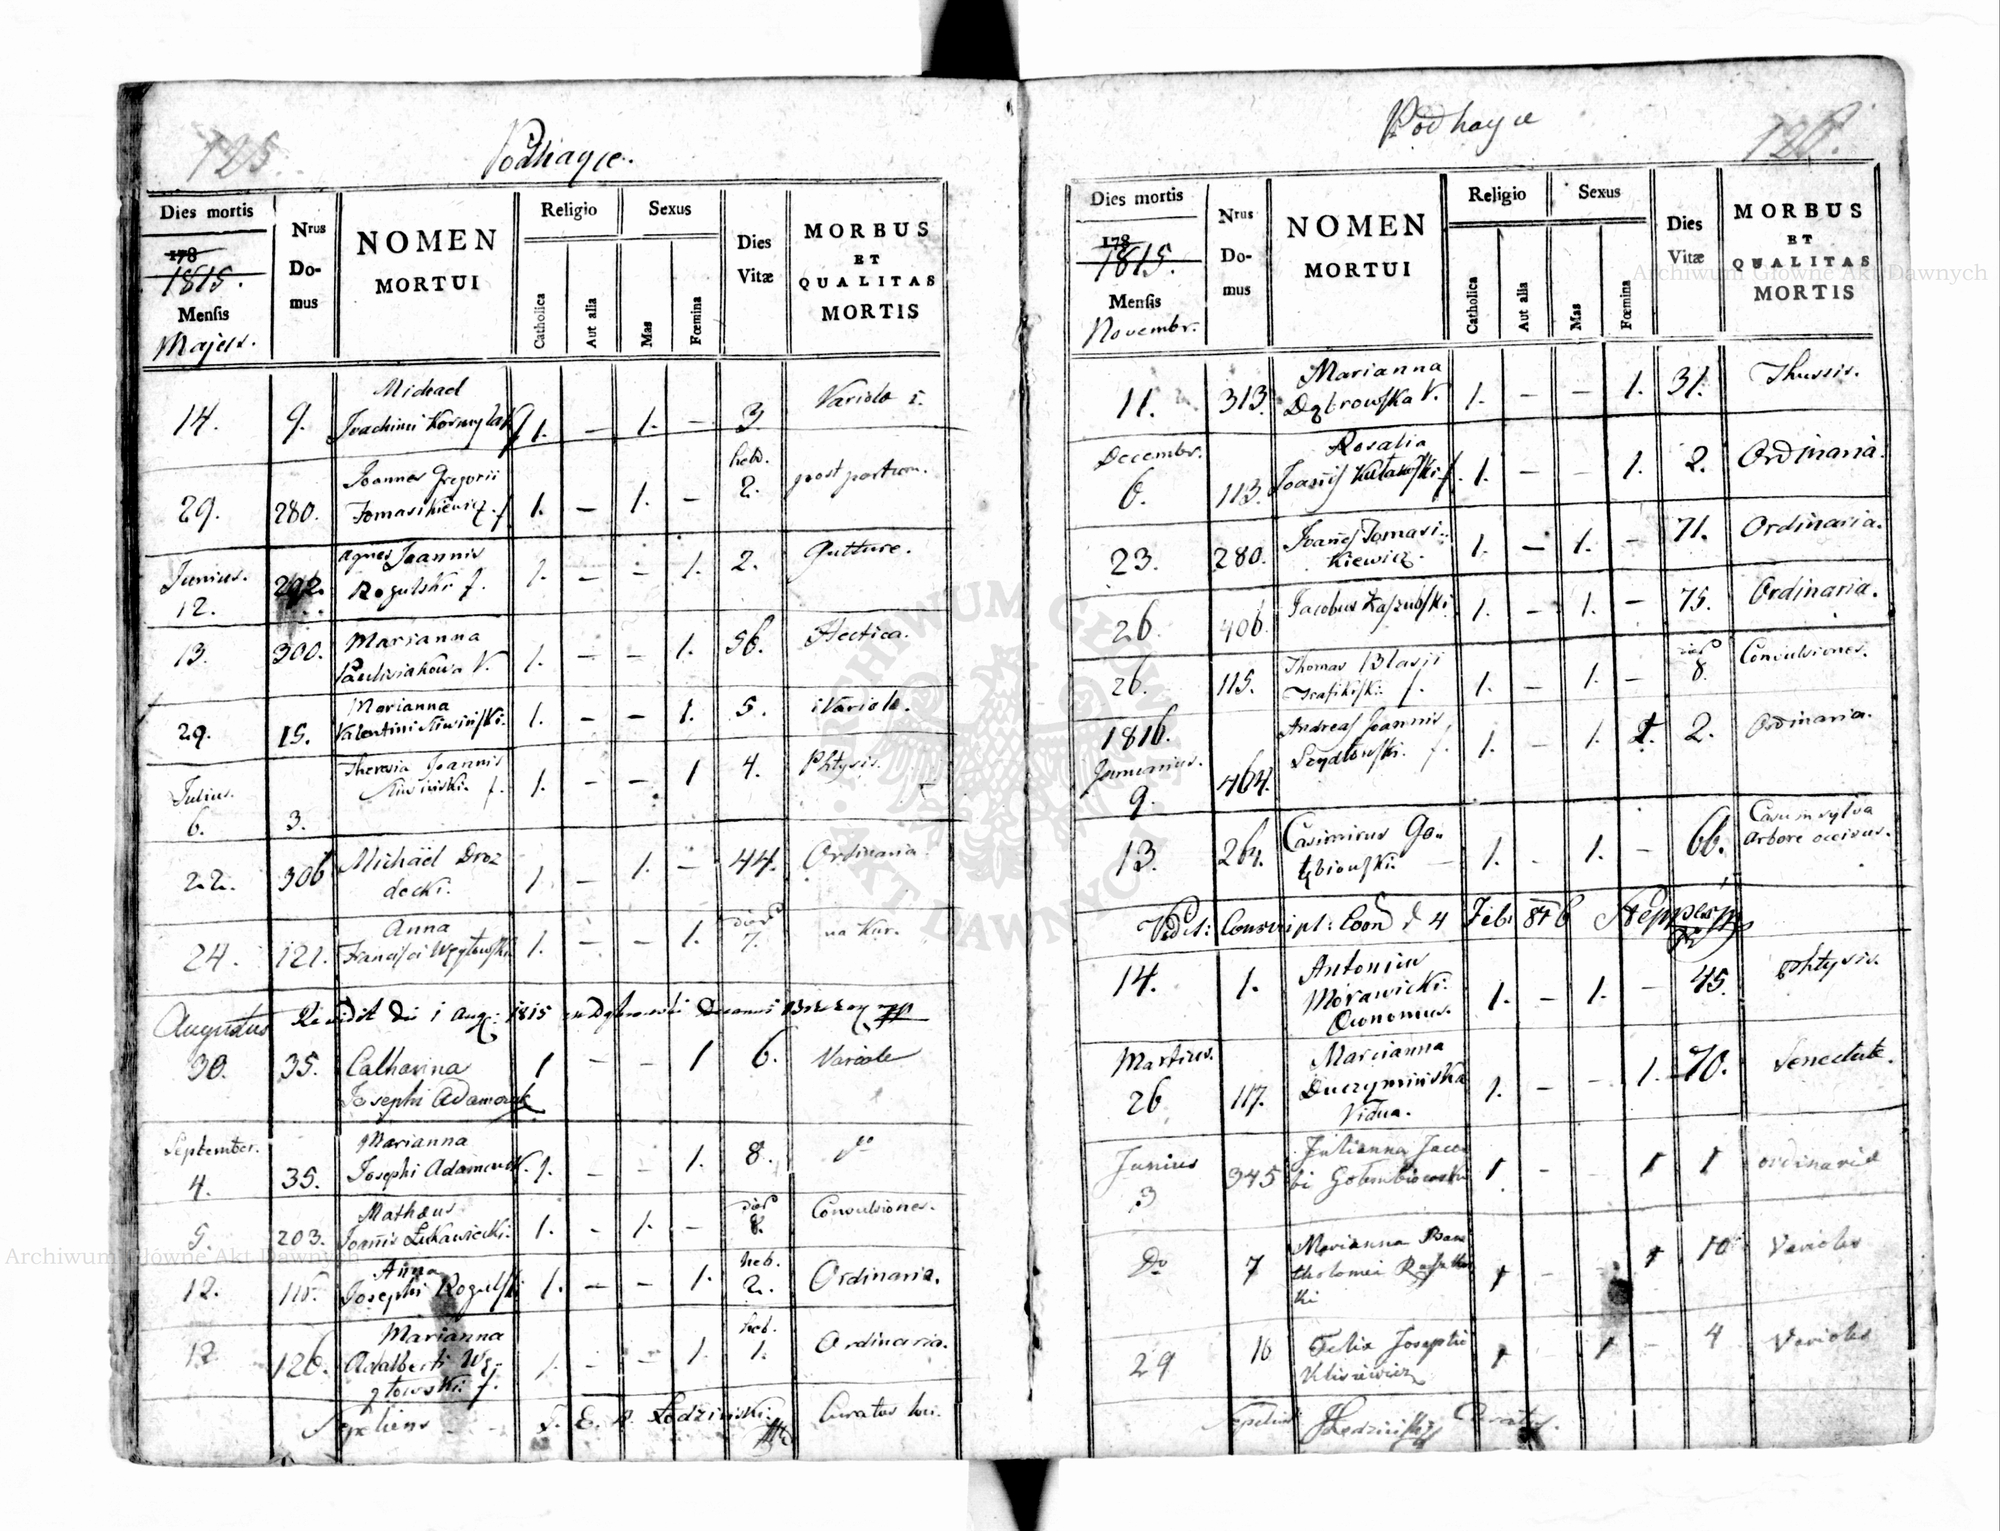 125.
Podhayce.
Dies mortis
178
1815.
Mensis
Majus.
Nrus
Do-
mus
NOMEN
MORTUI
Religio
Catholica
Aut alia
Sexus
Mas
Fœmina
Dies
Vitæ
MORBUS
ET
QUALITAS
MORTIS
Michael
14. 9. Joachimi 1. – 1. – 3. Variolæ
Joannes Gregorii heb. post partum.
29. 280. Tomasikiewicz f. 1. – 1. – 2.
Junius. Agnes Joannis
12. 292. Rogulski f. 1. – – 1. 2. Gutture.
Marianna
13. 300. Pavlisiakowa V. 1. – – 1. 56. Hectica.
Marianna
29. 15. Valentini 1. – – 1. 5. Variole.
Julius. Theresia Joannis
6. 3. f. 1. – – 1 4. Phtysis.
22. 306 Michäel Droz
decki. 1. – 1. – 44. Ordinaria.
Anna dies
24. 121. Francisci Węglowski 1. – – 1. 7. na Kur.
Augustus Revidit die 1 Aug: 1815 Decanus
30. 35. Catharina 1 – – 1 6. Variole
Josephi Adamczyk
September. Marianna
4. 35. Josephi Adamczyk. 1. – – 1. 8. do
Mathæus dies
5. 203. Joannis Lukawiecki. 1. – 1. – 8. Convulsiones.
Anna heb.
12. 116. Josephi Rogulski 1. – – 1. 2. Ordinaria.
Marianna heb.
12 126. Adalberti Wę- 1. – – 1. 1. Ordinaria.
głowski f.
Sepeliens F. E. A. Ledziński. Curatus loci.
Podhayce
126.
Dies mortis
178
1815.
Mensis
Novembr.
Nrus
Do-
mus
NOMEN
MORTUI
Religio
Catholica
Aut alia
Sexus
Mas
Fœmina
Dies
Vitæ
MORBUS
ET
QUALITAS
MORTIS
Marianna
11. 313. Dąbrowska V. 1. – – 1. 31. Thussis.
Decembr. Rosalia
6. 113. Joannis f. 1. – – 1. 2. Ordinaria.
23. 280. Joannes Tomasi-
kiewicz. 1. – 1. – 71. Ordinaria.
26. 406 Jacobus Kaszubski 1. – 1. – 75. Ordinaria.
Thomas Blasii dies
26. 115. f. 1. – 1. – 8. Convulsiones.
1816. Andreas Joannis
Januarius. f. 1. – 1. 2. Ordinaria.
9. 464.
Casimirus Go- Casu in sylva
13. 264. łębiowski. 1. – 1. – 66. Arbore occisus.
Vidit: Conscript: Coon d 4 Febr 816
14. 1. Antonius
Morawicki. 1. – 1. – 45. Phtysis.
Œconomus.
Martius. Marianna
26 117. Duczymińska 1. – – 1. 70. Senectute.
Vidua.
Junius Julianna Jaco
3 345 bi Gołembiowski 1 – – 1 1 ordinaria
Do 7 Marianna Bar
tholomei 1 – 1 10 Varioles
ki
29 16 Felix Josephi 1 – 1 – 4 Varioles
Klisiewicz
Sepeliens Ledziński Curatus.
Archiwum Główne Akt Dawnych
Archiwum Główne Akt Dawnych
ARCHIWUM GŁÓWNE AKT DAWNYCH